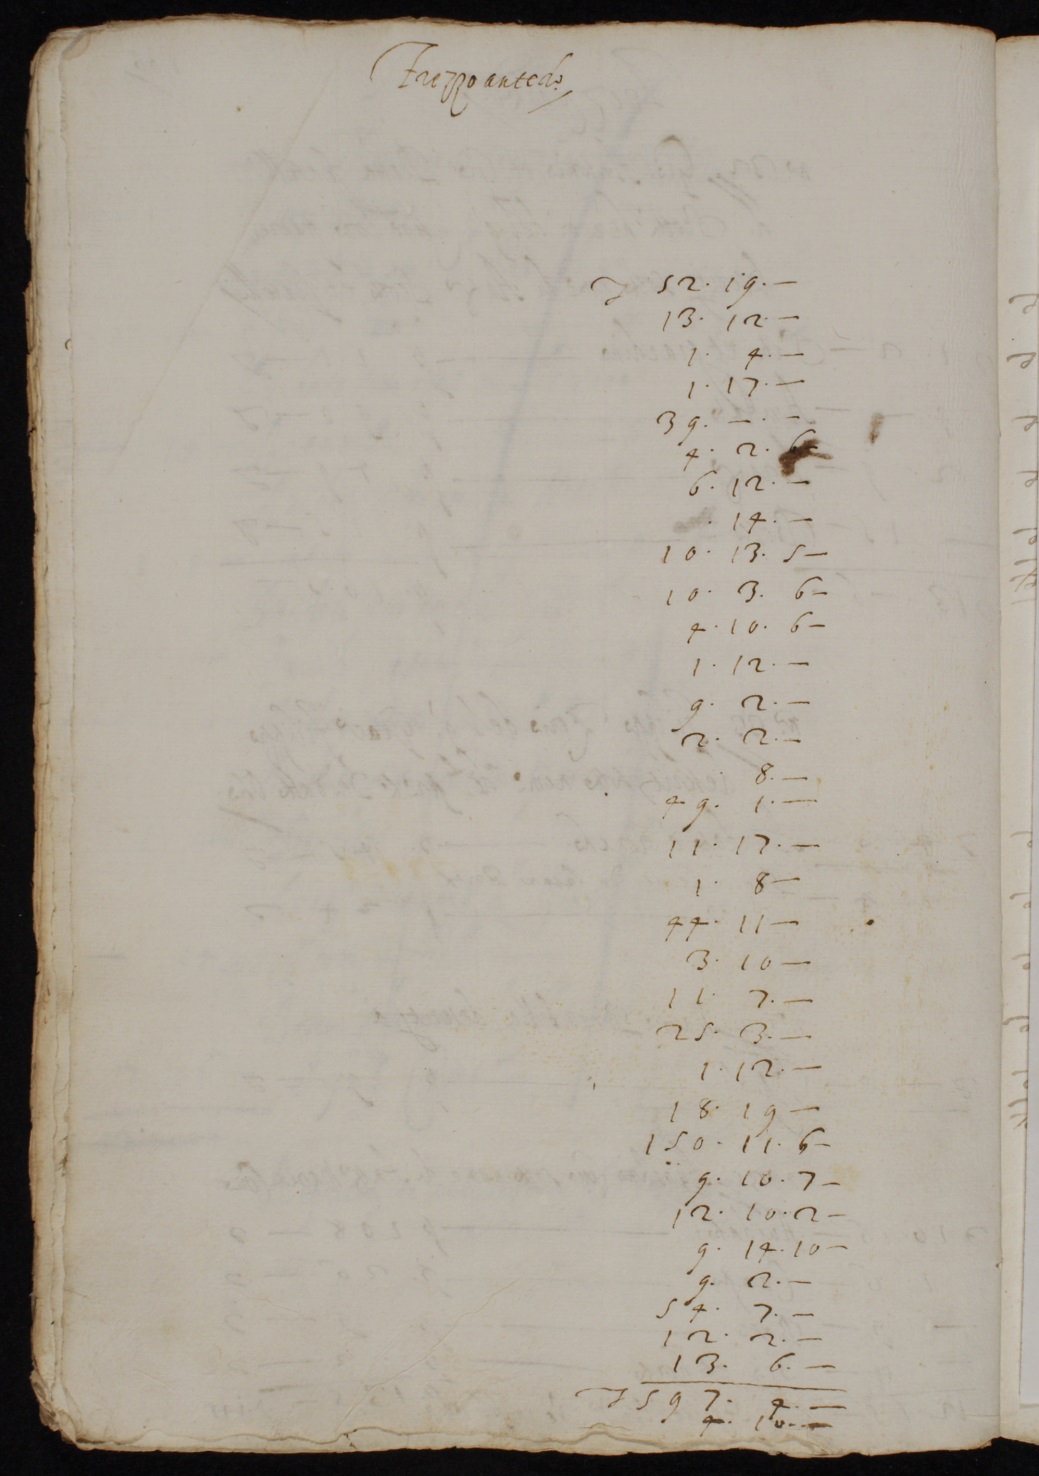 52. 19. —
13. 12. —
1. 4. —
1. 17. —
39. —. —
4. 2. 6
6. 12. —
. 14. —
10. 13. 5 —
10. 3. 6 —
4. 10. 6 —
1. 12. —
9. 2. —
2. 2. —
8. —
49. 1. —
11. 17. —
1. 8 —
44. 11 —
3. 10 —
11. 7. —
25. 3. —
1. 12. —
18. 19 —
150. 11. 6 —
9. 10. 7 —
12. 10. 2 —
9. 14. 10 —
9. 2. —
54. 7. —
12. 2. —
13. 6. —
597. 4. —
4. 10. —